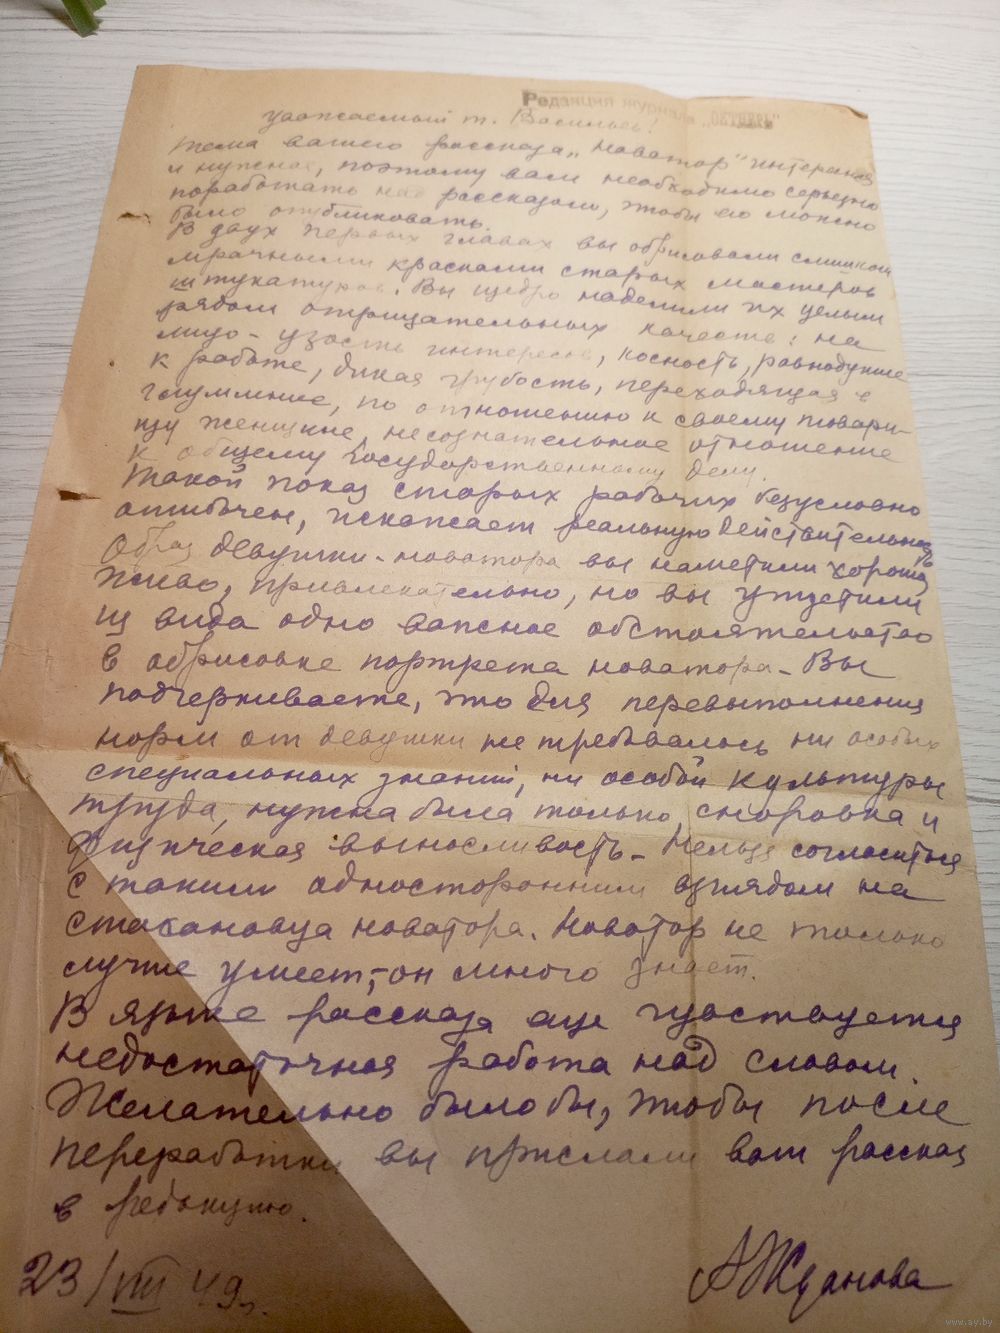 Редакция журнала „ОКТЯБРЬ"
Уважаемый т. Васильев!
Тема вашего рассказа „Новатор" интересная
и нужная, поэтому вам необходимо серьезно
поработать над рассказом, чтобы его можно
было опубликовать.
В двух первых главах вы обрисовали слишком
мрачными красками старых мастеров
штукатуров. Вы щедро наделили их целым
рядом отрицательных качеств: на
лицо – узость интересов, косность, равнодушие
к работе, дикая грубость, переходящая в
глумление, по отношению к своему товари-
щу женщине, несознательное отношение
к общему государственному делу.
Такой показ старых рабочих безусловно
ошибочен, искажает реальную действительность
Образ девушки-новатора вы наметили хорошо,
живо, привлекательно, но вы упустили
из вида одно важное обстоятельство
в обрисовке портрета новатора – Вы
подчеркиваете, что для перевыполнения
норм от девушки не требовалось ни особых
специальных знаний, ни особой культуры
труда, нужна была только сноровка и
физическая выносливость – Нельзя согласиться
с таким односторонним взглядом на
стахановца новатора. Новатор не только
лучше умеет, – он много знает.
В языке рассказа еще чувствуется
недостаточная работа над словом.
Желательно было бы, чтобы после
переработки вы прислали ваш рассказ
в редакцию.
23/VIII 49г.
А Жданова
www.ay.by